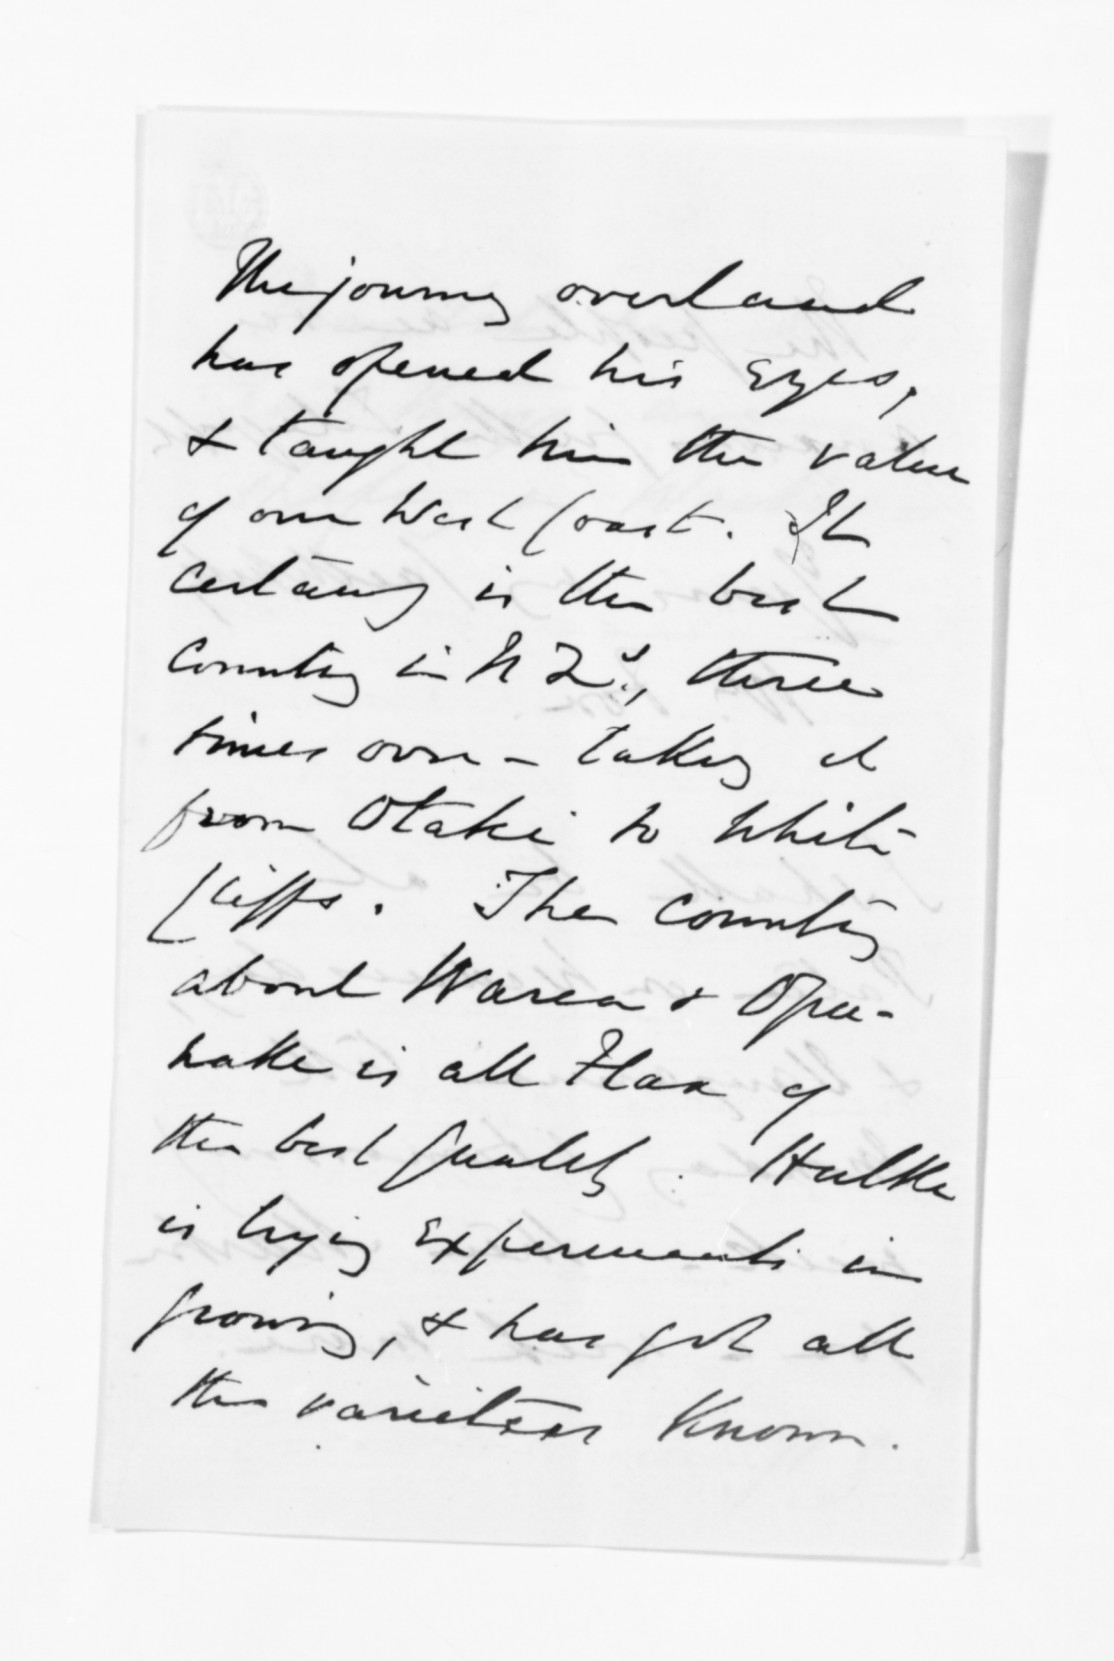 The journey overland
has opened his eyes,
& taught him the value
of our West Coast. It
certainly is the best
country in N Zd., three
times over - taking it
from Otaki to White
Cliffs. The country
about Warea & Opu-
nake is all Flax of
the best quality. Hulke
is trying experiments in
growing, & has got all
the varieties known.